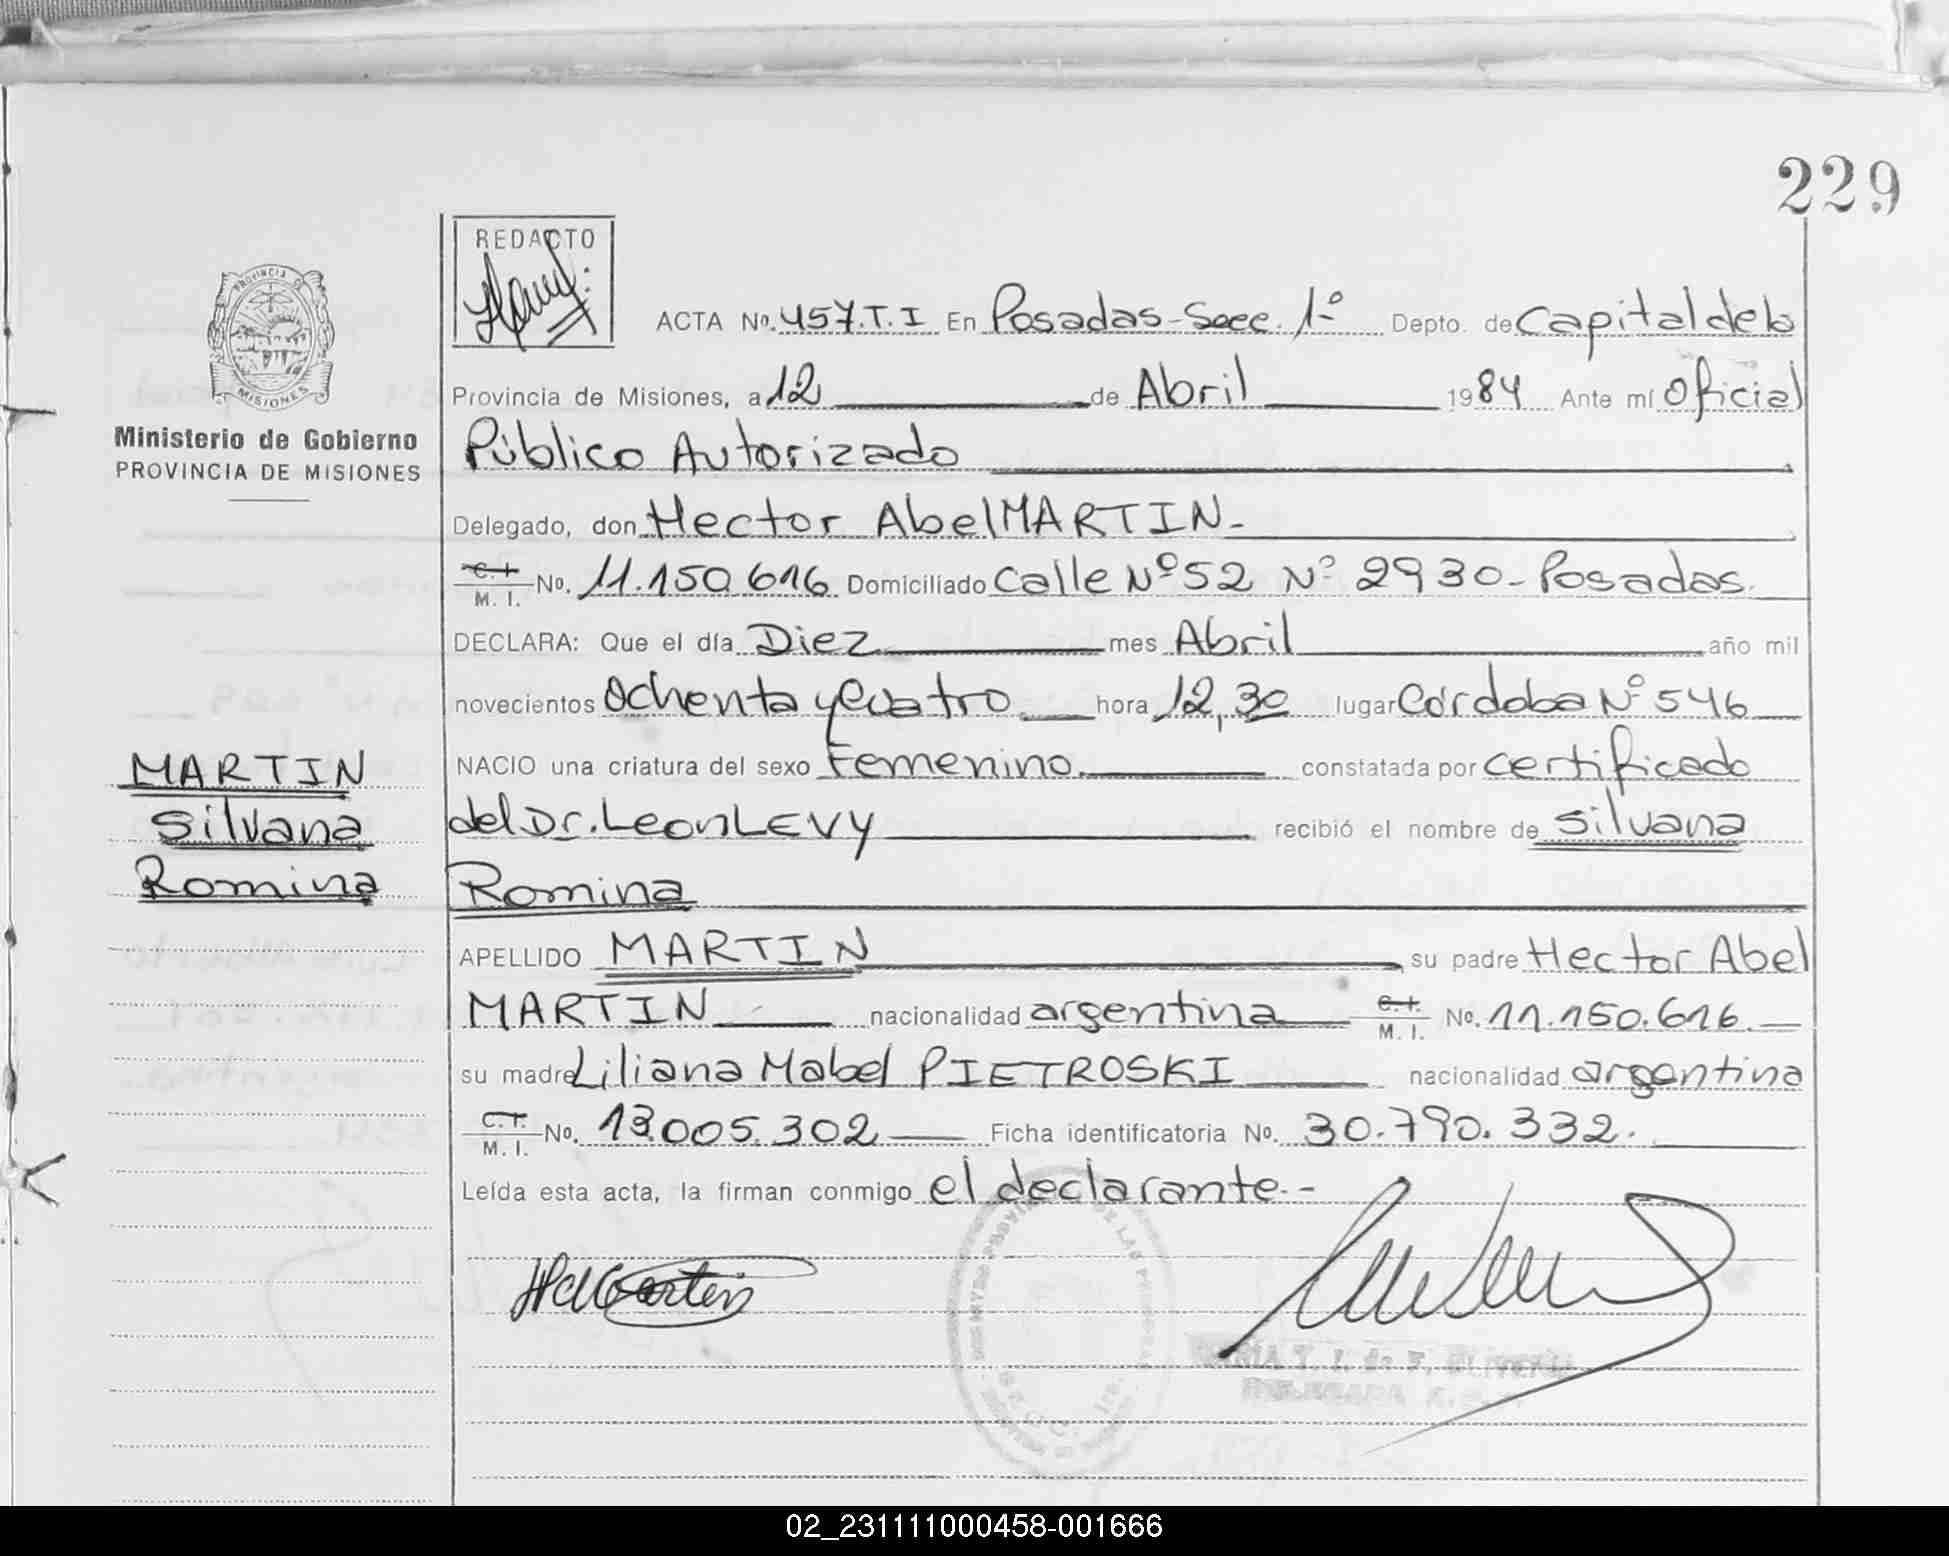 229
REDACTO
ACTA Nº. 457.T.I En Posadas-Secc. 1º Depto. de Capital de la
Provincia de Misiones, a 12 de Abril 1984 Ante mí Oficial
Ministerio de Gobierno
PROVINCIA DE MISIONES
Público Autorizado
Delegado, don Hector Abel MARTIN-
C.I. M. I. No. 11.150.616 Domiciliado Calle Nº 52 Nº 2930- Posadas.
DECLARA: Que el día Diez mes Abril año mil
novecientos Ochenta y Cuatro hora 12,30 lugar Córdoba Nº 546
NACIO una criatura del sexo Femenino. constatada por certificado
del Dr. Leon LEVY recibió el nombre de Silvana
Romina
MARTIN
Silvana
Romina
APELLIDO MARTIN su padre Hector Abel
MARTIN nacionalidad argentina C.I. M. I. Nº. 11.150.616.
su madre Liliana Mabel PIETROSKI nacionalidad argentina
C.I. M. I. No. 13.005.302 Ficha identificatoria No. 30.790.332.
Leída esta acta, la firman conmigo el declarante.-
02_231111000458-001666